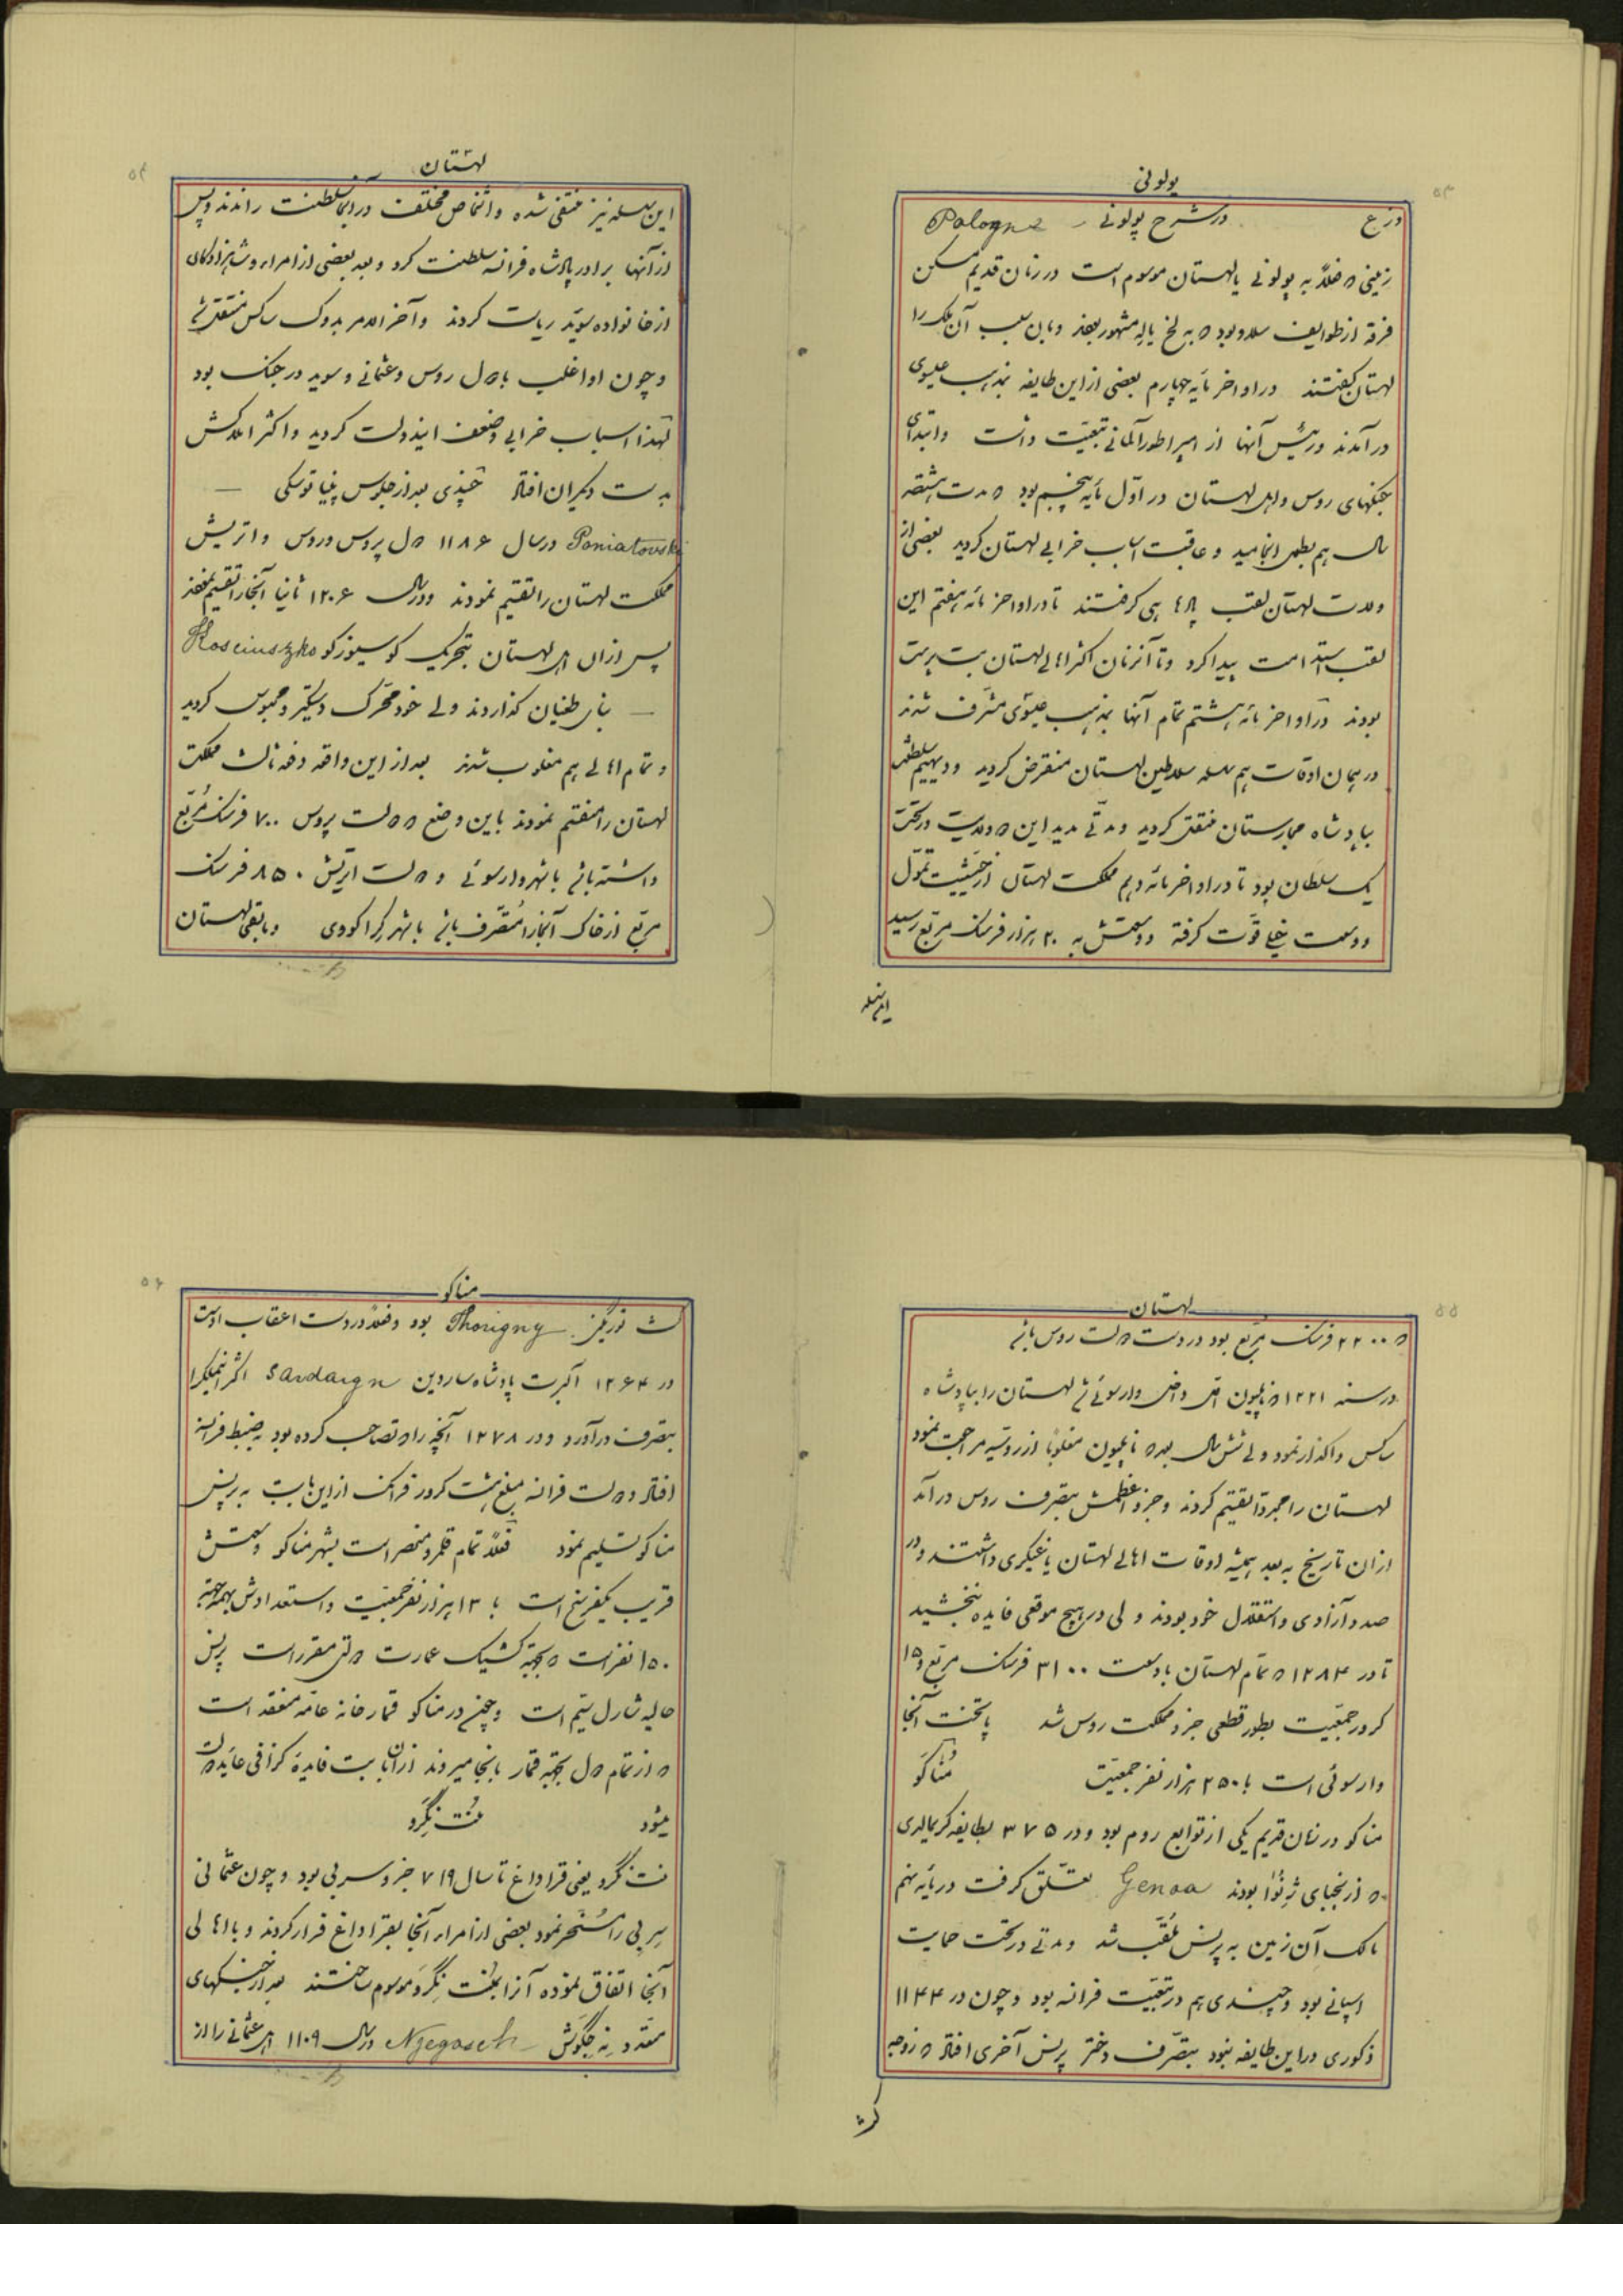 ۵۳
پولونی
در شرح پولونی Pologne
زمینی که فعلاً به پولونی یا لهستان موسوم است در زمان قدیم مسکن
فرقه از طوایف سلاو بود که به لخ یا له مشهور بودند و باین سبب آن ملک را
لهستان گفتند در اواخر مأیه چهارم بعضی از این طایفه بمذهب عیسوی
در آمدند و رئیس آنها از امپراطور آلمانی تبعیّت داشت و ابتدای
جنگهای روس و اهل لهستان در اوّل مأیه پنجم بود که مدت هشتصد
سال هم بطول انجامید و عاقبت اسباب خرابی لهستان گردید بعضی از
ولات لهستان لقب پادشاهی گرفتند تا در اواخر مائه هفتم این
لقب استدامت پیدا کرد و تا آنزمان اکثر اهالی لهستان بت پرست
بودند در اواخر مائه هشتم تمام آنها بمذهب عیسوی مشرّف شدند
در همان اوقات هم سلسله سلاطین لهستان منقرض گردید و دیهیم سلطنت
بپادشاه مجارستان منتقل گردید و مدّتی مدید این دو دولت در تحت
یک سلطان بود تا در اواخر مائه دهم مملکت لهستان از حیثیت تموّل
و وسعت خیلی قوّت گرفته و وسعتش به ۲۰ هزار فرسنگ مربّع رسید
این سلسله
۵۴
لهستان
این سلسله نیز منقضی شده و اشخاص مختلف در آنجا سلطنت راندند و پس
از آنها برادر پادشاه فرانسه سلطنت کرد و بعد بعضی از امراء و شاهزادگان
از خانواده سوید ریاست کردند و آخر الامر بدوک ساکس منتقل شد
و چون او اغلب با دول روس و عثمانی و سوید در جنگ بود
لهذا اسباب خرابی و ضعف ایندولت گردید و اکثر املاکش
بدست دیگران افتاد چندی بعد از جلوس پنیاتوسکی —
Poniatovski در سال ۱۱۸۶ دول پروس و روس و اتریش
مملکت لهستان را تقسیم نمودند و در سال ۱۲۰۶ ثانیاً آنجا را تقسیم نمودند
پس از آن اهل لهستان بتحریک کوسیوزکو Kosciuszko
— بنای طغیان گذاردند ولی خود محّرک دستگیر و محبوس گردید
و تمام اهالی هم مغلوب شدند بعد از این واقعه دفعه ثالث مملکت
لهستان را منقسم نمودند باین وضع که دولت پروس ۷۰۰ فرسنگ مُربّع
داشته باشد با شهر وارسوئی و دولت اتریش ۸۵۰ فرسنگ
مربّع از خاک آنجا را متصّرف باشد با شهر کراکووی و مابقی لهستان
۵۵
لهستان
که ۲۲۰۰ فرسنگ مُربّع بود در دست دولت روس باشد
در سنه ۱۲۲۱ که ناپلیون اوّل داخل وارسوئی شد لهستان را بپادشاه
ساکس واگذار نمود ولی شش سال بعد که ناپلیون مغلوباً از روسیه مراجعت نمود
لهستان را مجدداً تقسیم کردند و جزو اعظمش بتصرف روس در آمد
از آن تاریخ به بعد همیشه اوقات اهالی لهستان یاغیگری داشتند و در
صدد آزادی و استقلال خود بودند ولی در هیچ موقعی فایده نبخشید
تا در ۱۲۸۴ که تمام لهستان با وسعت ۳۱۰۰ فرسنگ مربّع و ۱۵
کرور جمعّیت بطور قطعی جزو مملکت روس شد پایتخت آنجا
وارسوئی است با ۲۵۰ هزار نفر جمعیّت مُناکَو
مناکو در زمان قدیم یکی از توابع روم بود و در ۳۷۵ بطایفه گریمالدی
که از نجبای ژِنُوا بودند Genoa تعلّق گرفت در مأیه نهم
مالک آن زمین به پرنس مُلقّب شد و مدتی در تحت حمایت
اسپانی بود و چندی هم در تبعّیت فرانسه بود و چون در ۱۱۴۴
ذکوری در این طایفه نبود بتصّرف دختر پرنس آخری افتاد که زوجه
۵۶
مناکو
Thorigny بود و فعلاً در دست اعقاب اوست
در ۱۲۶۴ آلبرت پادشاه ساردین Sardaign اکثر اینملک را
بتصّرف در آورد و در ۱۲۷۸ آنچه را که تصاحب کرده بود بضبط فرانسه
افتاد و دولت فرانسه مبلغ هشت کرور فرانک از این بابت به پرنس
مناکو تسلیم نمود فعلاً تمام قلمرو منحصر است بشهر مناکو وسعتش
قریب یکفرسخ است با ۱۳ هزار نفر جمعّیت و استعدادش بهمه جهة
۱۵۰ نفر است که بجهة کشیک عمارت دولتی مقرر است پرنس
حالیه شارل سیّم است و چون در مناکو قمارخانه عامّه منعقد است
که از تمام دول بجهة قمار بانجا میروند از آن بابت فایدهٔ گزافی عاید دولت
میشود مُنت نِگرو
منت نگرو یعنی قراداغ تا سال ۷۱۹ جزو سربی بود و چون عثمانی
سِربی را مُسّخر نمود بعضی از امراء آنجا بقراداغ فرار کردند و با اهالی
آنجا اتفاق نموده آنرا بمُنت نِگرو موسوم ساختند بعد از جنگهای
متعدّد نِه جِگوش Njegosch در سال ۱۱۰۹ اهل عثمانی را از